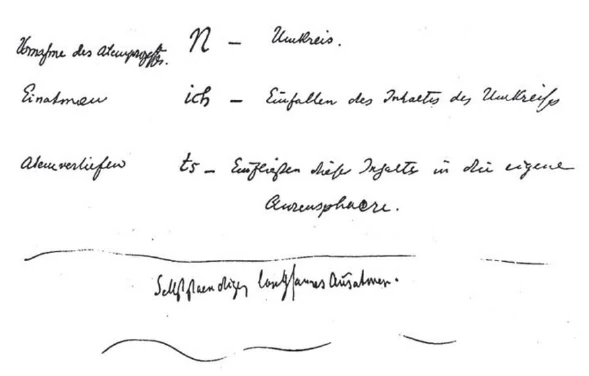 Vornahme des Atemprozesses. N – Umkreis.
Einatmen ich – Einfallen des Inhaltes des Umkreises
Atemvertiefen ts – Einfließen dieses Inhalts in die eigene
Aurensphaere.
Selbststaendiges langsames Ausatmen.